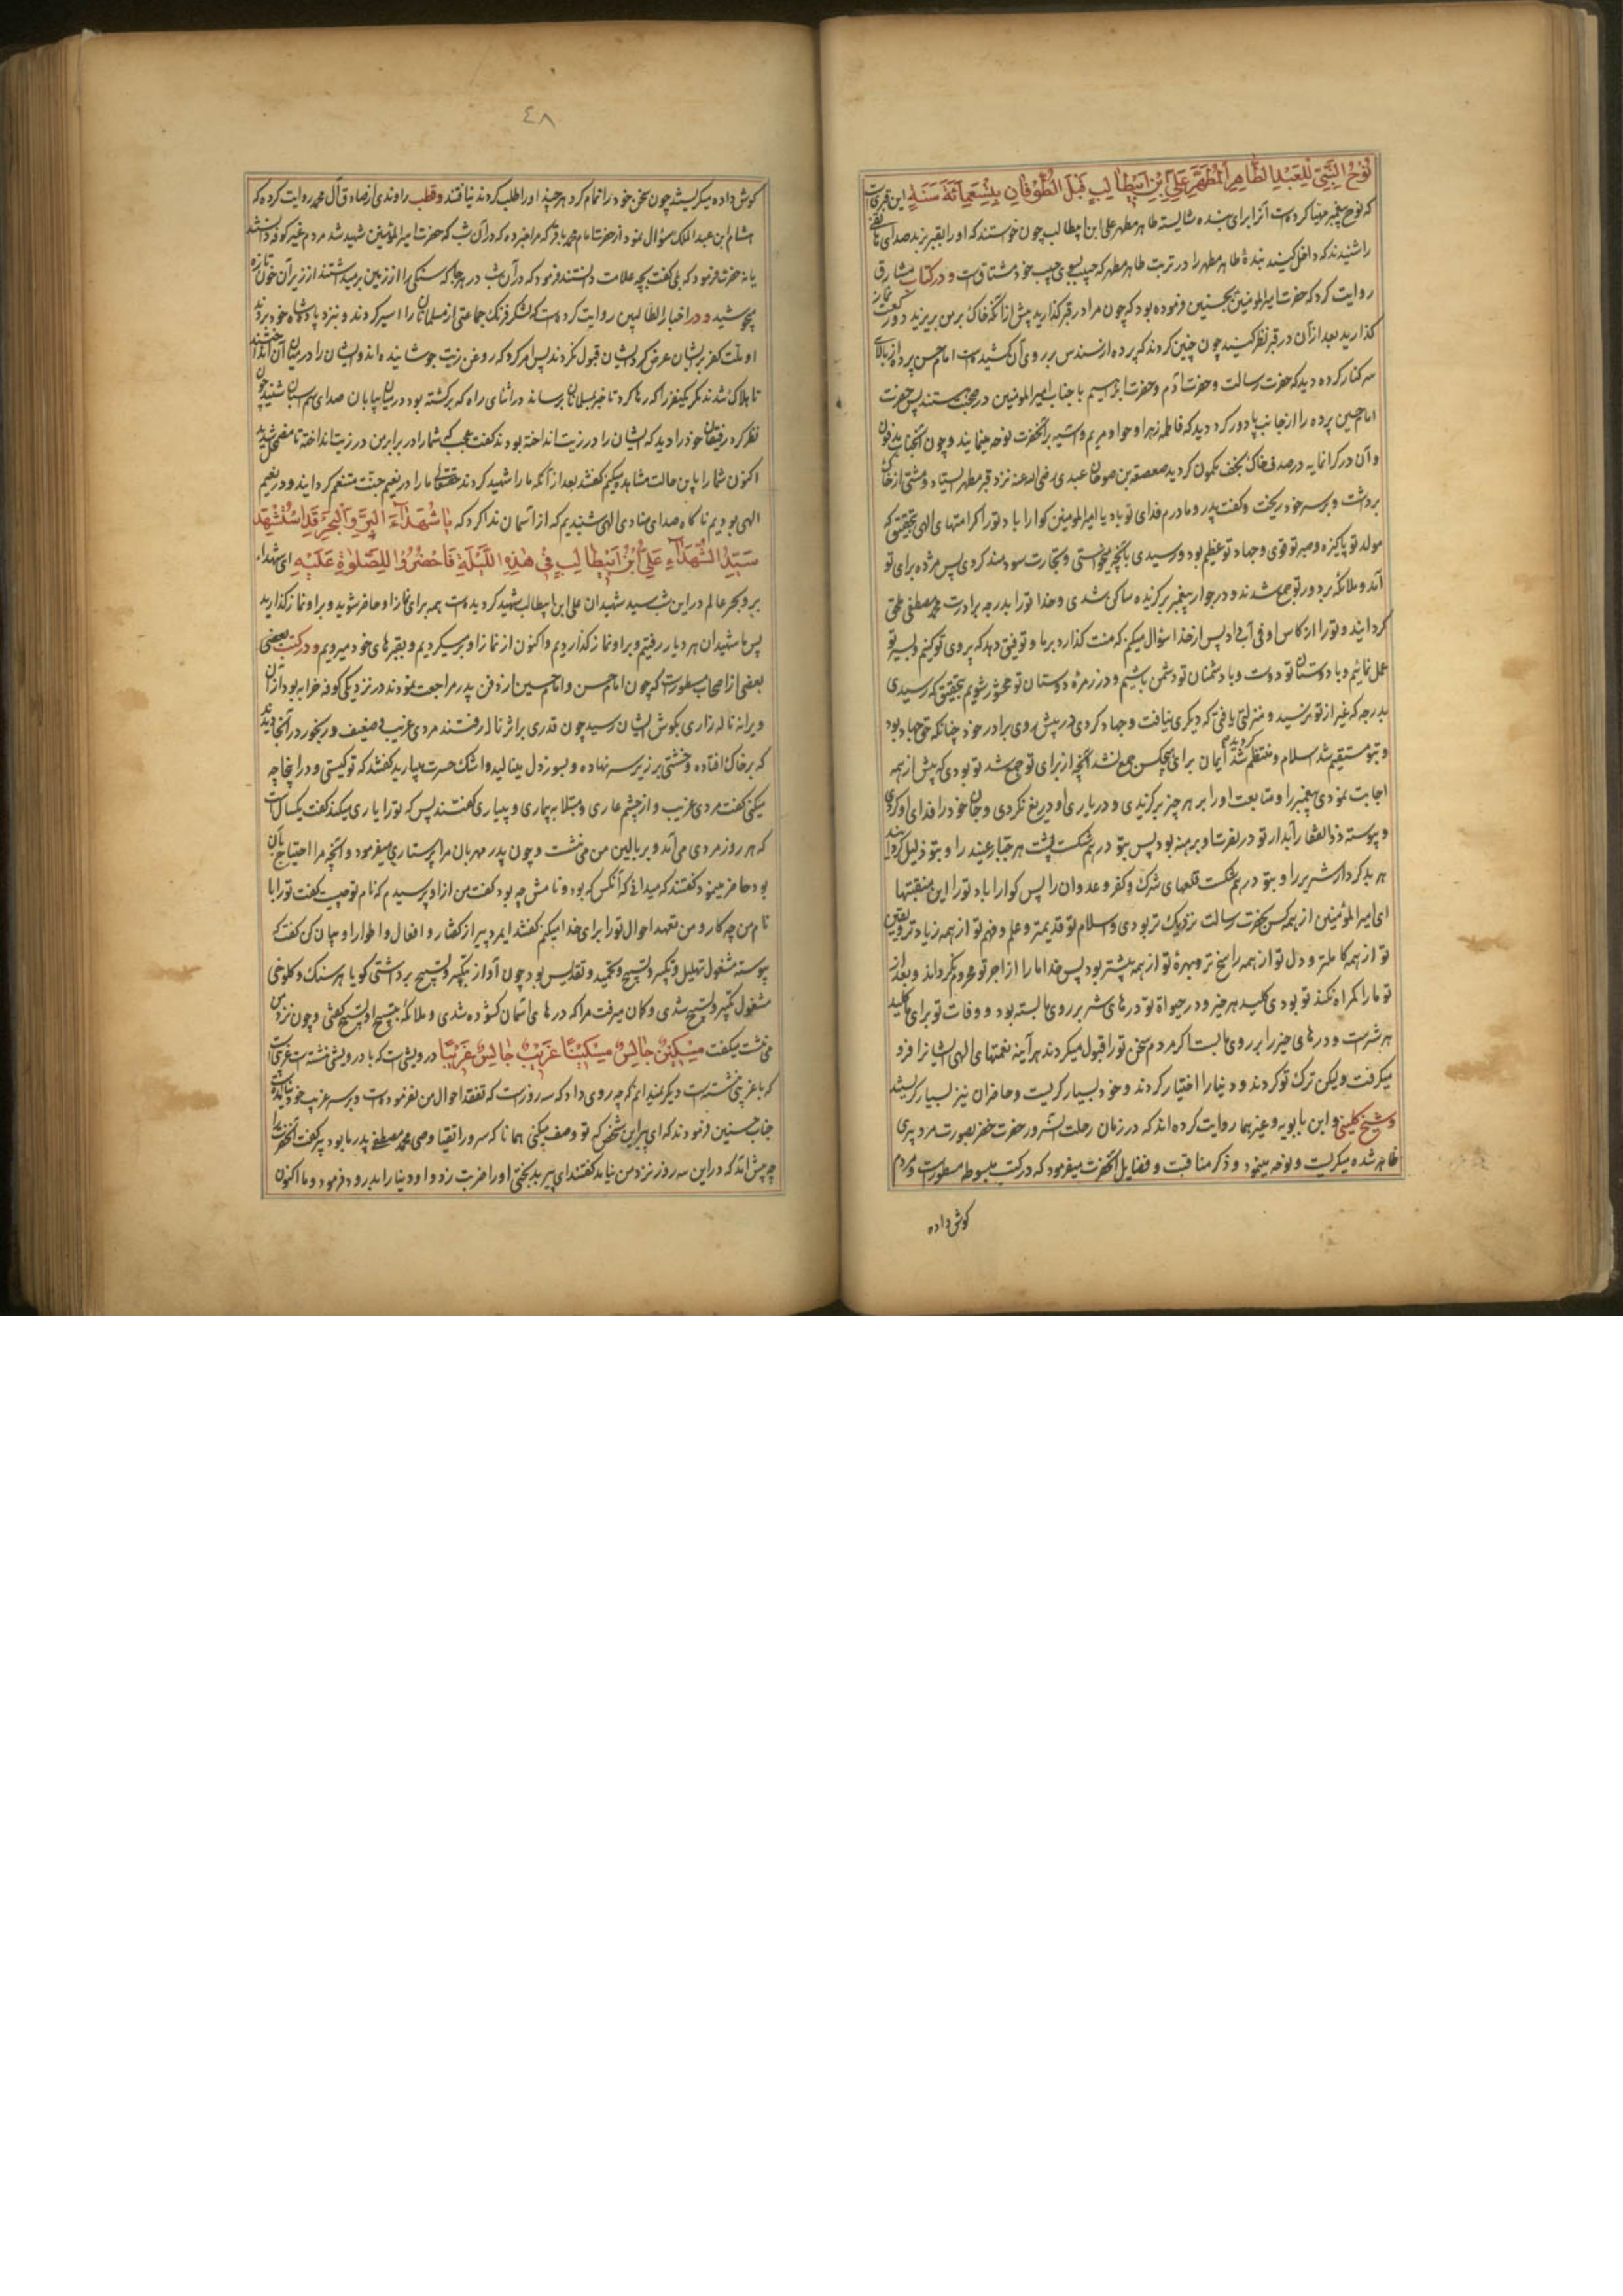 نُوحُ النَّبِيِّ لِلْعَبْدِ الطَّاهِرِ الْمُطَهَّرِ عَلِيِّ بْنِ اَبِيطٰالِبٍ قَبْلَ الطُّوفٰانِ بِتِسْعِمِائَةِ سَنَةٍ این قبری است
که نوح پیغمبر مهیا کرده است آنرا برای بنده شایسته طاهر مطهر علی ابن ابیطالب چون خواستند که او را بقبر برند صدای هاتفی
را شنیدند که داخل کنید بندهٔ طاهر مطهر را در تربت طاهر مطهر که حبیب بسوی حبیب خود مشتاقست و در کتاب مشارق
روایت کرد که حضرت امیرالمومنین بحسنین فرموده بود که چون مرا در قبر گذارید پیش از انکه خاک بر من بریزید دو رکعت نماز
گذارید بعد از آن در قبر نظر کنید چون چنین کردند که پرده از سندس بر روی آن کشیده است امام حسن پرده از بالای
سر کنار کرده دید که حضرت رسالت و حضرت آدم و حضرت ابراهیم با جناب امیرالمومنین در صحبت هستند پس حضرت
امام حسین پرده را از جانب پا دور کرد دید که فاطمه زهرا و حوا و مریم و آسیه بر آنحضرت نوحه مینمایند و چون آنجناب مدفون
و آن در گرانمایه در صدف خاک نجف مکنون گردید صعصعه بن صوحان عبدی رضی الله عنه نزد قبر مطهر ایستاد و مشتی از خاک
برداشت و بر سر خود ریخت و گفت پدر و مادرم فدای تو باد یا امیرالمومنین گوارا باد تو را کرامتهای الهی بتحقیق که
مولد تو پاکیزه و صبر تو قوی و جهاد تو عظیم بود و رسیدی بآنچه میخواستی و تجارت سودمند کردی پس مژده برای تو
آمد و ملائکه بر دور تو جمع شدند و در جوار پیغمبر برگزیده ساکن شدی و خدا تو را بدرجه برادرت محمد مصطفی ملحق
گردانید و تو را از کاس او فی آب داد پس از خدا سؤال میکنم که منت گذارد بر ما و توفیق دهد که پیروی تو کنیم و بسیر تو
عمل نمائیم و با دوستان تو دوست و با دشمنان تو دشمن باشیم و در زمرهٔ دوستان تو محشور شویم بتحقیق که رسیدی
بدرجه که غیر از تو نرسید و منزلتی یافتی که دیگری نیافت و جهاد کردی در پیش روی برادر خود چنانکه حق جهاد بود
و بتو مستقیم شد اسلام و منتظم گردید ایمان برای هیچکس جمع نشد آنچه از برای تو جمع شد تو بودی که پیش از همه
اجابت نمودی پیغمبر را و متابعت او را بر هر چیز برگزیدی و در یاری او دریغ نکردی و جان خود را فدای او کردی
و پیوسته ذوالفقار آبدار تو در نصرت او برهنه بود پس بتو درهم شکست پشت هر جبار عنید را و بتو ذلیل گردانید
هر بد کردار شریر را و بتو درهم شکست قلعهای شرک و کفر و عدوان را پس گوارا باد تو را این منقبتها
ای امیرالمؤمنین از همه کس بحضرت رسالت نزدیک تر بودی و اسلام تو قدیمتر و علم و فهم تو از همه زیادتر و یقین
تو از همه کاملتر و دل تو از همه راسخ تر و بهرهٔ تو از همه بیشتر بود پس خدا ما را از اجر تو محروم نگرداند و بعد از
تو ما را گمراه نکند تو بودی کلید هر خیر و در حیوة تو درهای شر بر روی ما بسته بود و وفات تو برای ما کلید
هر شر است و درهای خیر را بر روی ما بست اگر مردم سخن تو را قبول میکردند هرآینه نعمتهای الهی ایشانرا فرو
میگرفت ولیکن ترک تو کردند و دنیا را اختیار کردند و خود بسیار گریست و حاضران نیز بسیار گریستند
و شیخ کلینی و ابن بابویه و غیرهما روایت کرده اند که در زمان رحلت آنسرور حضرت خضر بصورت مرد پیری
ظاهر شده میگریست و نوحه مینمود و ذکر مناقبت و فضایل آنحضرت میفرمود که در کتب مبسوطه مسطور است و مردم
گوش داده
٤٨
گوش داده میگریستند چون سخن خود را تمام کرد هر چند او را طلب کردند نیافتند و قطب راوندی از صادق آل محمد روایت کرده که
هشام ابن عبدالملک سؤال نمود از حضرت امام محمد باقر که مرا خبر ده که در آن شب که حضرت امیرالمؤمنین شهید شد مردم غیر کوفه دانستند
یا نه حضرت فرمود که بلی گفت بچه علامت دانستند فرمود که در آن شب در هر جا که سنگی را از زمین برمیداشتند از زیر آن خون تازه
میجوشید و در اخبار الطالبین روایت کرده است که لشکر فرنگ جماعتی از مسلمانان را اسیر کردند و بنزد پادشاه خود بردند
او ملت کفر بایشان عرض کرد ایشان قبول نکردند پس امر کرد که روغن زیت جوشانیده اند و ایشان را در میان آن انداختند
تا هلاک شدند مگر یکنفر را که رها کرد تا خبر بمسلمانان برساند در اثنای راه که برگشته بود در میان بیابان صدای سم اسبان شنید چون
نظر کرد رفیقان خود را دید که ایشان را در زیت انداخته بودند گفت عجب که شما را در برابر من در زیت انداخته تا مضمحل شدید
اکنون شما را باین حالت مشاهده میکنم گفتند بعد از آنکه ما را شهید کردند حقتعالی ما را در نعیم جنت متنعم گردانید و در نعیم
الهی بودیم ناگاه صدای منادی الهی شنیدیم که از آسمان ندا کرد که یٰا شُهَدٰآءَ الْبَرِّ وَالْبَحْرِ قَدِ اسْتُشْهِدَ
سَیِّدُ الشُّهَدٰآءِ عَلِیُّ بْنُ اَبِیطٰالِبٍ فِی هٰذِهِ اللَّیْلَةِ فَاحْضُرُوا لِلصَّلٰوةِ عَلَیْهِ ای شهداء
بر و بحر عالم در این شب سید شهیدان علی ابن ابیطالب شهید گردیده است همه برای نماز او حاضر شوید و بر او نماز گذارید
پس ما شهیدان هر دیار رفتیم و بر او نماز گذاردیم و اکنون از نماز او برمیگردیم و بقبرهای خود میرویم و در کتب بعضی
بعضی از اصحاب مسطور است که چون امام حسن و امام حسین از دفن پدر مراجعت نمودند در نزدیکی کوفه خرابه بود از آن
ویرانه ناله زاری بگوش ایشان رسید چون قدری بر اثر ناله رفتند مردی غریب و ضعیف و رنجور در آنجا دیدند
که بر خاک افتاده و خشتی بر زیر سر نهاده و بسوز دل مینالید و اشک حسرت میبارید گفتند که تو کیستی و در اینجا چه
میکنی گفت مردی غریب و از چشم عاری و مبتلا به بیماری و بیماری گفتند پس که تو را یاری میکند گفت یکسال است
که هر روز مردی می آمد و بر بالین من می نشست و چون پدر مهربان مرا پرستاری میفرمود و آنچه مرا احتیاج بآن
بود حاضر مینمود گفتند که میدانی که آنکس که بود و نامش چه بود گفت من از او پرسیدم که نام تو چیست گفت تو را با
نام من چه کار و من تعهد احوال تو را برای خدا میکنم گفتند ایمرد پیر از گفتار و افعال و اطوار او بیان کن گفت که
پیوسته مشغول تهلیل و تکبیر و تسبیح و تحمید و تقدیس بود چون آواز بتکبیر و تسبیح برداشتی گویا هر سنگ و کلوخی
مشغول تکبیر و تسبیح شدی و گمان میرفت مرا که درهای آسمان گشوده شدی و ملائکه بتسبیح او تسبیح گفتی و چون نزد من
می نشست میگفت مِسْکِینٌ جٰالِسٌ مِسْکِینًا غَرِیبٌ جٰالِسٌ غَرِیبًا درویشی است که با درویشی نشسته است غریبی است
که با غریبی نشسته است دیگر نمیدانم که چه روی داد که سه روز است که تفقد احوال من نفرموده است و بر سر غریب خود نیامده است
جناب حسنین فرمودند که ای پیر این شخص که تو وصف میکنی همانا که سرور اتقیا وصی محمد مصطفی پدر ما بود پیر گفت آنحضرت را
چه پیش آمد که در این سه روز نزد من نیامد گفتند ای پیر بدبختی او را ضربت زد و او دنیا را بدرود فرمود و ما اکنون